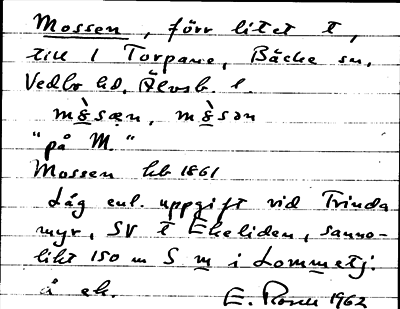 Mossen, förr litet t,
till 1 Torpane, Bäcke sn,
Vedbo hd, Älvsb. l.
mòssæn, mòssən
"på M."
Mossen hb 1861
Låg enl. uppgift vid Trinda
myr, SV t Ekeliden, sanno-
likt 150 m S m i Lommetj.
å ek. E. Rosen 1962